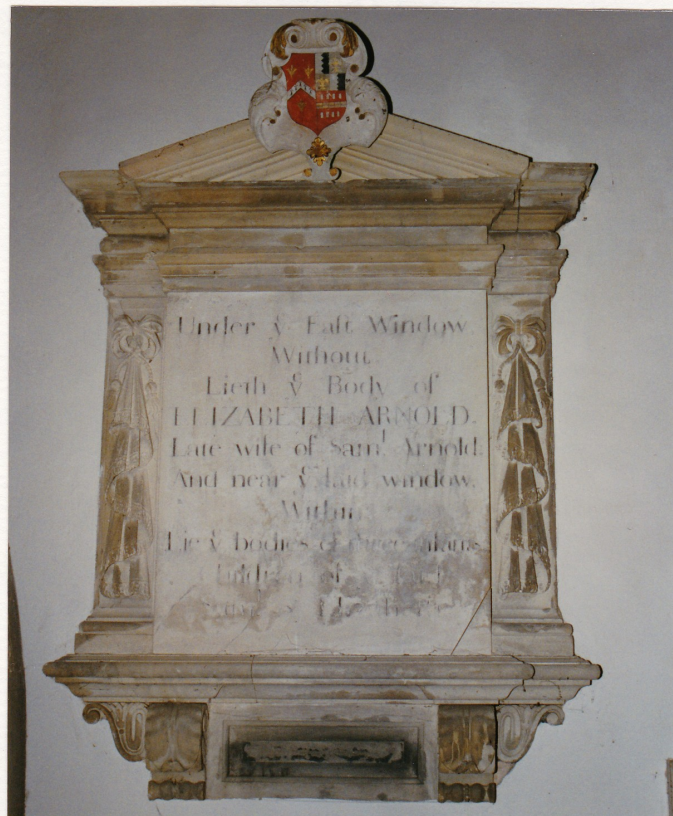 Under yᵉ Eaſt Window.
Without.
Lieth yᵉ Body of
ELIZABETH ARNOLD.
Late wife of Samˡ. Arnold.
And near yᵉ ſaid window.
Within
Lie yᵉ bodies of
of